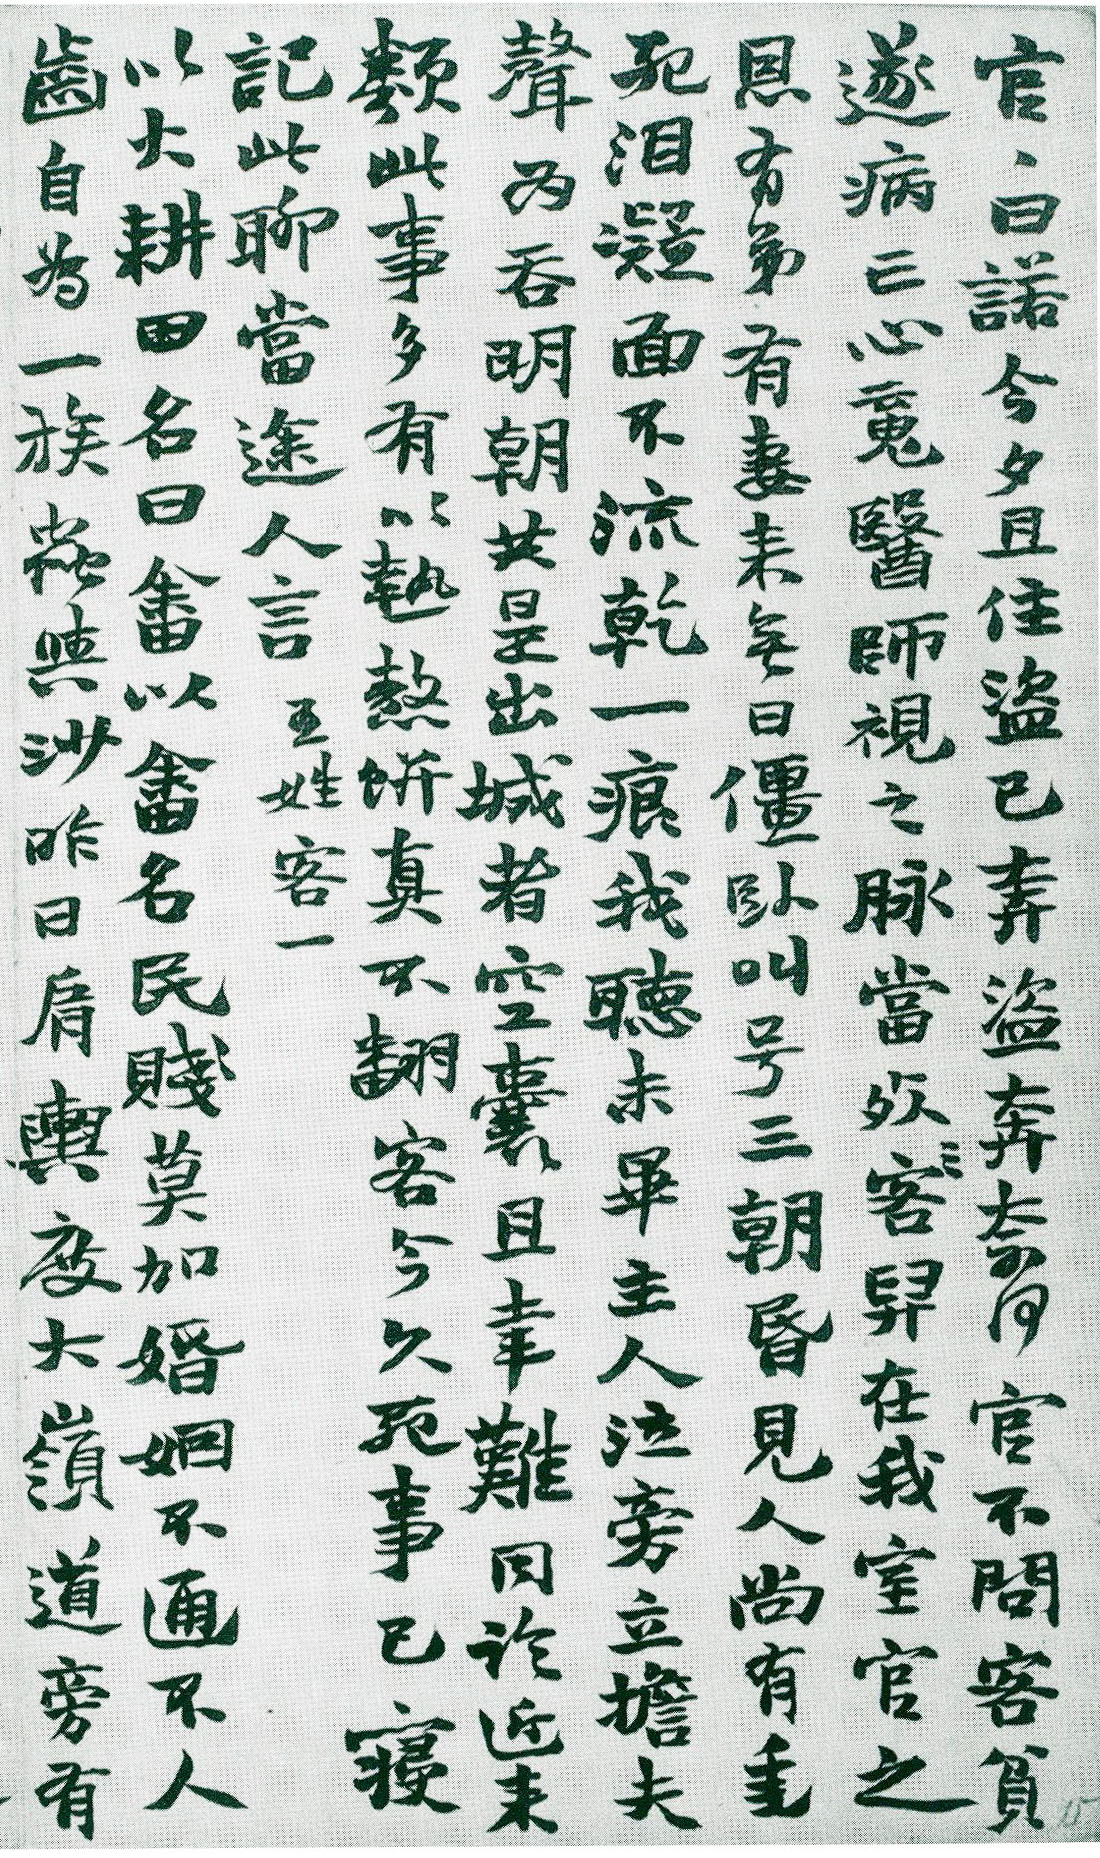 官、曰諾今夕且住盜已奔盜奔奈何官不問客貧
遂病亡心魂醫師視之脉當歿客〻舁在我室官之
恩有弟有妻来無日僵臥叫号三朝昏見人尚有垂
死泪凝面不流乾一痕我聽未畢主人泣旁立擔夫
聲為吞明朝共是出城者空囊且幸難同論近来
類此事多有以熬餅真不翻客今久死事已寢
記此聊當途人言 五姓客一
以大耕田名曰畬以畬名民賤莫加婚姻不通不人
齒自為一族蟲與沙昨日肩輿度大嶺道旁有